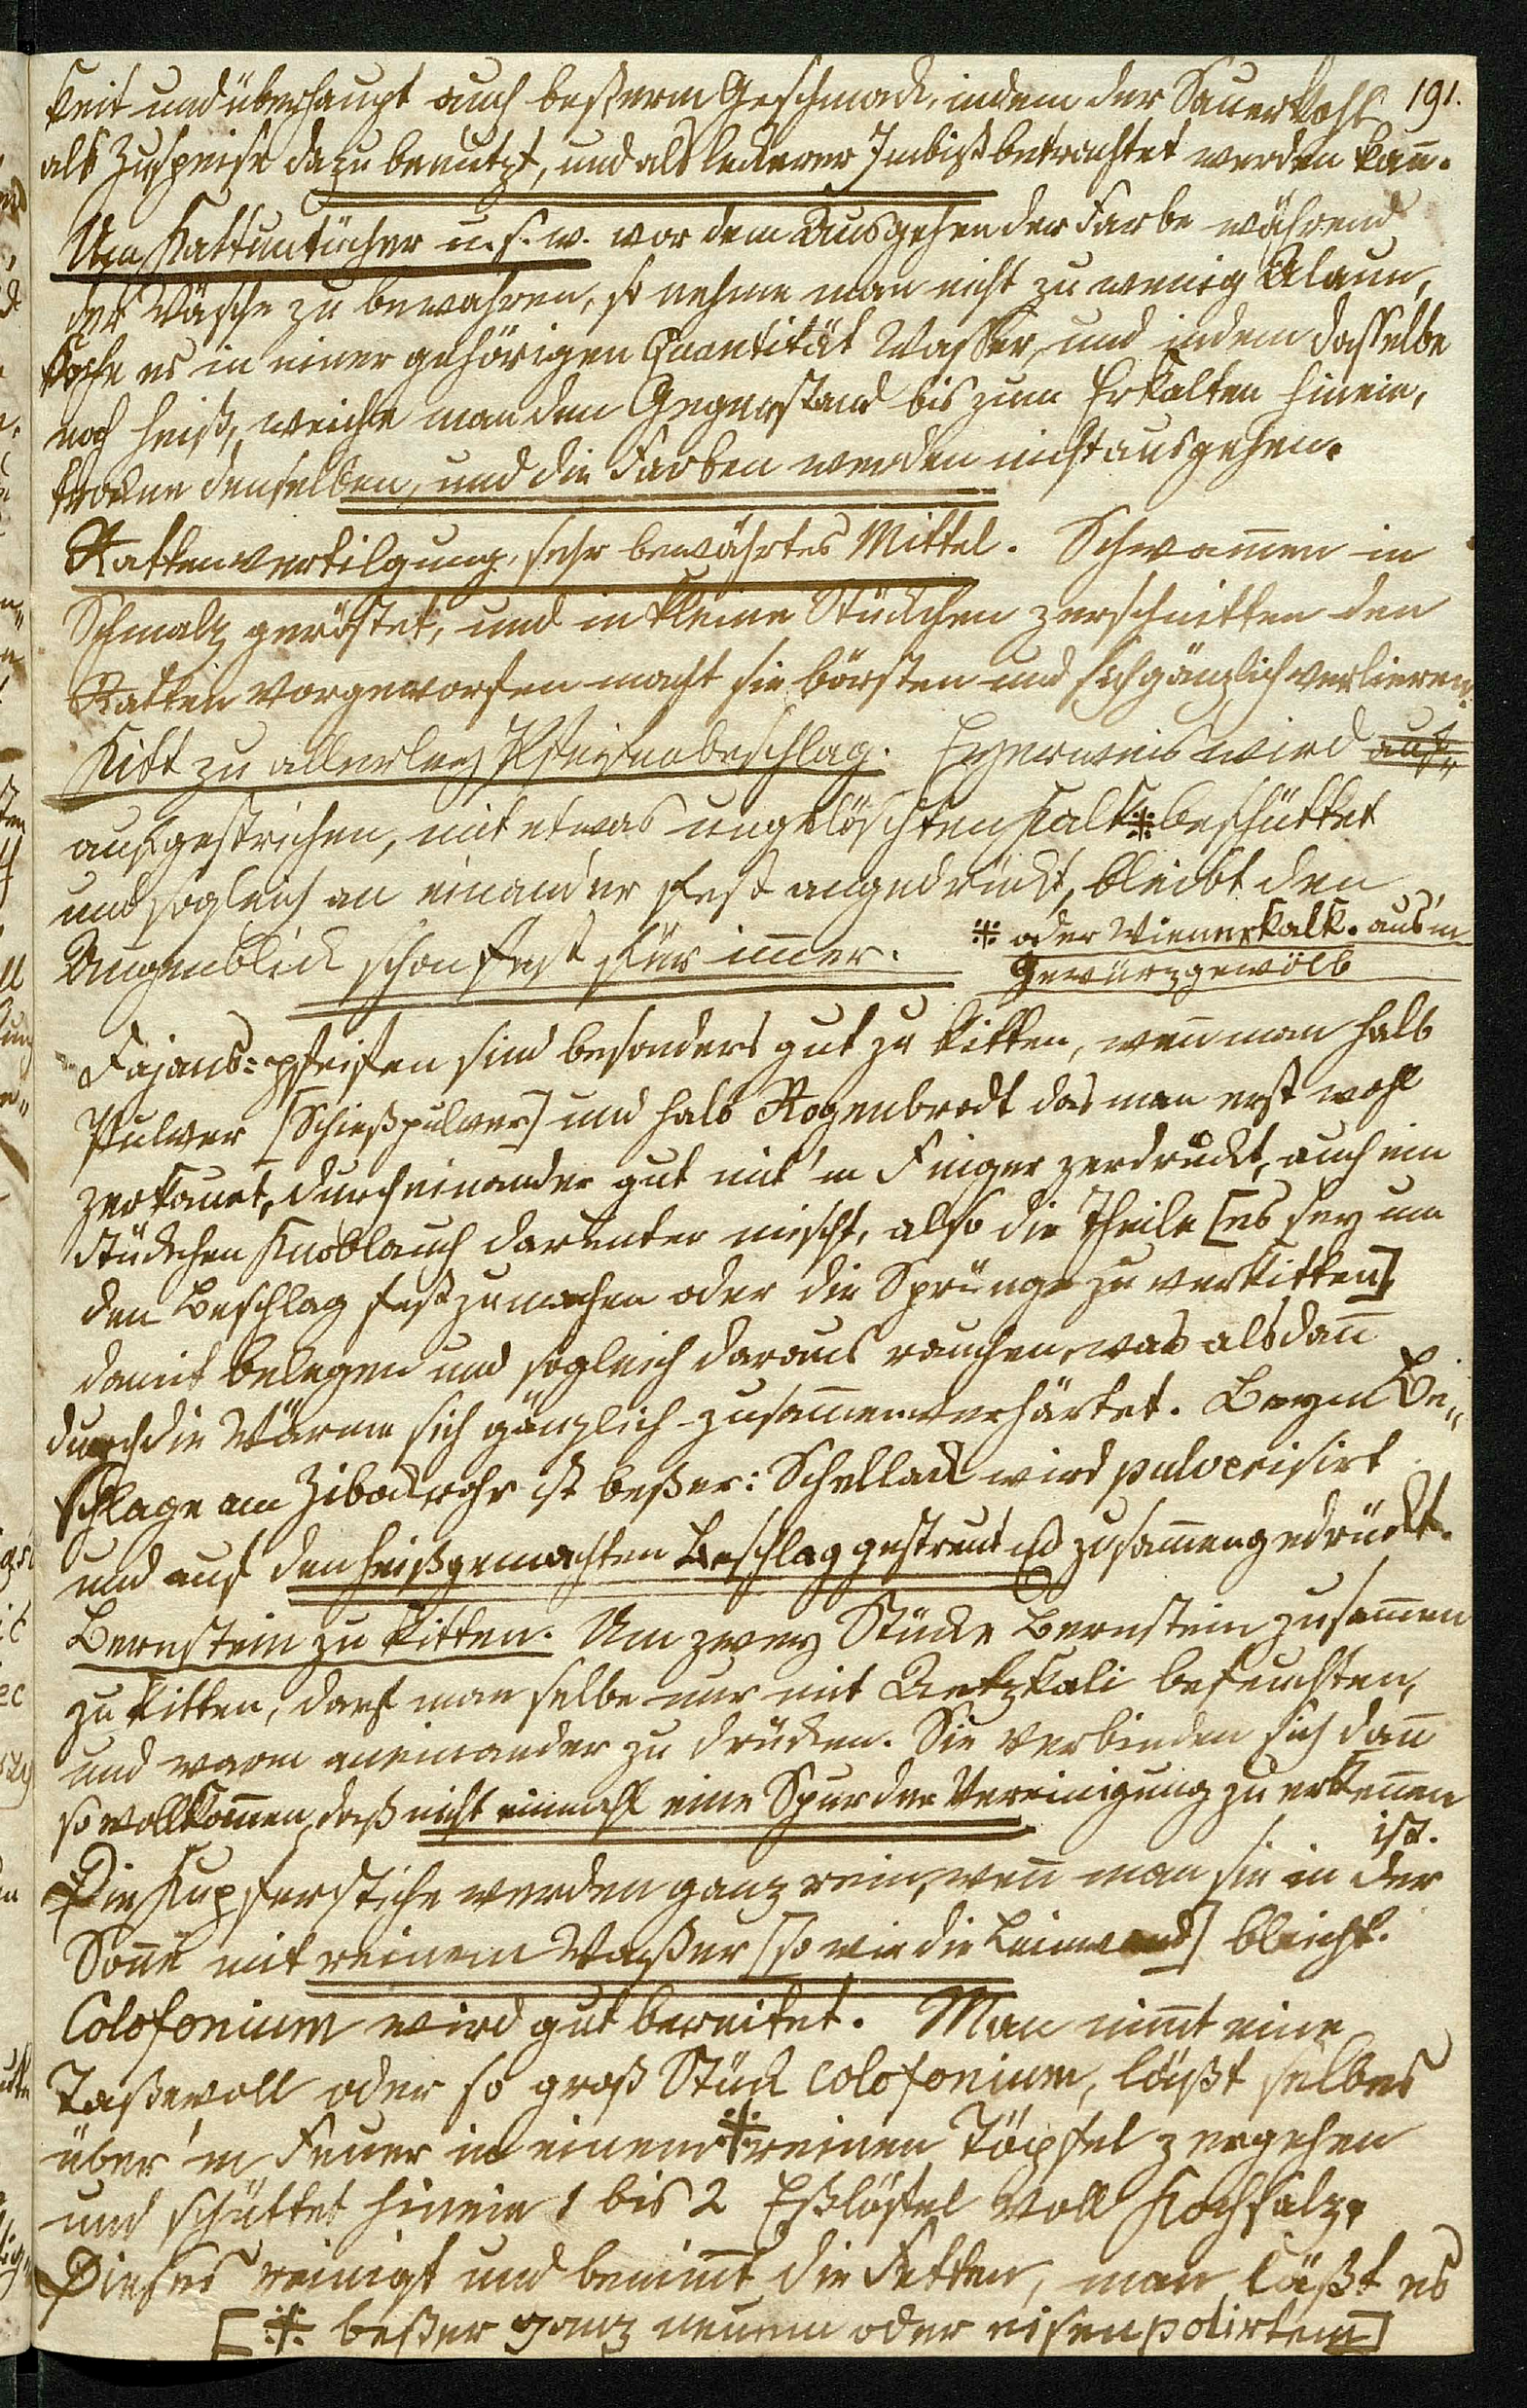 191.
keit und überhaupt auch beßerm Geschmack, indem der Sauerkohl
als Zuspeise dazu benutzt, und als leckerer Imbiß betrachtet werden kan̄.
Um Kattuntücher u. s. w. vor dem Ausgehen der Farbe während
der Wäsche zu bewahren, so nehme man nicht zu wenig Alaun,
koche es in einer gehörigen Quantität Wasser, und indem dasselbe
noch heiß, weiche man den Gegenstand bis zum Erkalten hinein,
trockne denselben, und die Farben werden nicht ausgehen.
Rattenvertilgung, sehr bewährtes Mittel. Schwam̄en in
Schmalz geröstet, und in kleine Stückchen zerschnitten den
Ratten vorgeworfen macht sie börsten und sich gänzlich verlieren.
Kitt zu allerley Pfeifenbeschlag. Eyerweis wird auf„
aufgestrichen, mit etwas ungelöschten Kalk ※ beschüttet
und sogleich an einander fest angedrückt, bleibt den
Augenblick schon fest für im̄er.
※ oder Wienerkalk. aus'm
Gewürzgewölb
Fajans=pfeifen sind besonders gut zu kitten, wen̄ man halb
Pulver [Schießpulver] und halb Rogenbrodt das man erst wohl
zerkauet, durcheinander gut mit'm Finger zerdrückt, auch ein
Stückchen Knoblauch darunter mischt, also die Theile [es sey um
den Beschlag fest zu machen oder die Sprünge zu verkitten]
damit belegen und sogleich daraus rauchen, was alsdan̄
durch die Wärme sich gänzlich zusam̄enverhärtet. Beym Be„
schlage am Zibockrohr ist beßer: Schellack wird pulverisirt
und auf den heißgemachten Beschlag gestreut und zusam̄engedrückt.
Bernstein zu kitten. Um zwey Stücke Bernstein zusam̄en
zu kitten, darf man selbe nur mit Aetzkali befeuchten,
und warm aneinander zu drücken. Sie verbinden sich dan̄
so vollkom̄en, daß nicht einmahl eine Spur der Vereinigung zu erken̄en
ist.
Die Kupferstiche werden ganz rein, wen̄ man sie in der
Son̄e mit reinem Waßer [so wie die Leinwand] bleicht.
Colofonium wird gut bereitet. Man nim̄t eine
Taßevoll oder so groß Stück Colofonium, läßt selbes
über'm Feuer in einem ※ reinen Töpfel zergehen
und schüttet hinein 1 bis 2 Eßlöffel voll Kochsalz.
Dieses reinigt und benim̄t die Fetten, man läßt es
[※ beßer ganz neuem oder eisenpolirtem]